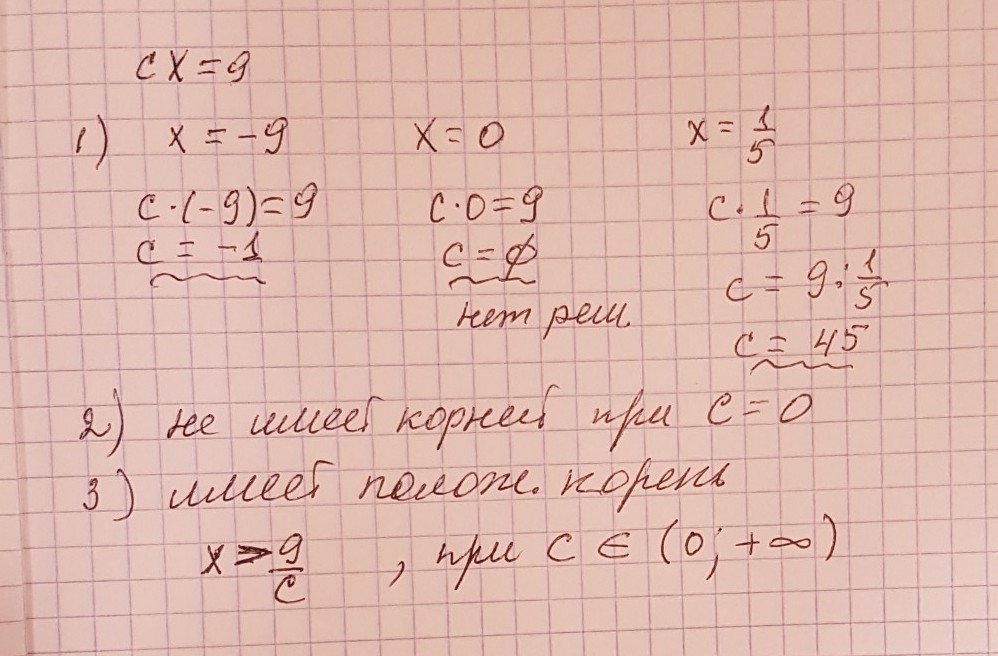 cx = 9
1) x = -9 x = 0 x = 1/5
c·(-9) = 9 c·0 = 9 c·1/5 = 9
c = -1 c = ∅ c = 9 : 1/5
нет реш. c = 45
2) не имеет корней при c = 0
3) имеет полож. корень
x = 9/c , при c ∈ (0; +∞)